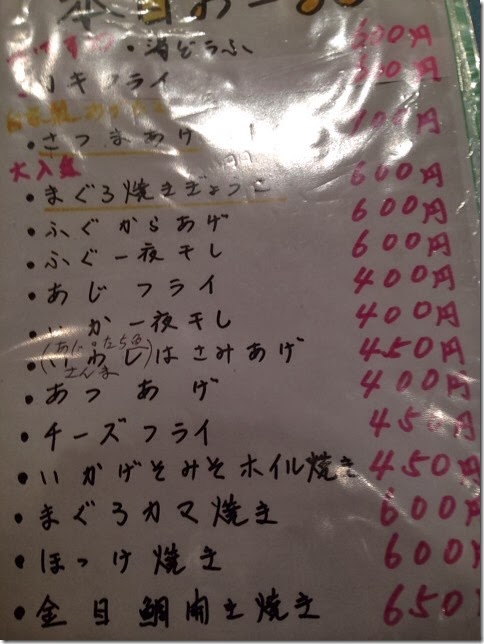 本日
・湯どうふ 500円
カキフライ 500円
・さつまあげ 100円
大人気
・まぐろ焼きぎょうこ 600円
・ふぐからあげ 600円
・ふぐ一夜干し 600円
・あじフライ 400円
・いか一夜干し 400円
(あじ・たら・
・いわし)はさみあげ 450円
さんま
・あつあげ 400円
・チーズフライ 450円
・いかげそみそホイル焼き 450円
・まぐろカマ焼き 600円
・ほっけ焼き 600円
・金目鯛開き焼き 650